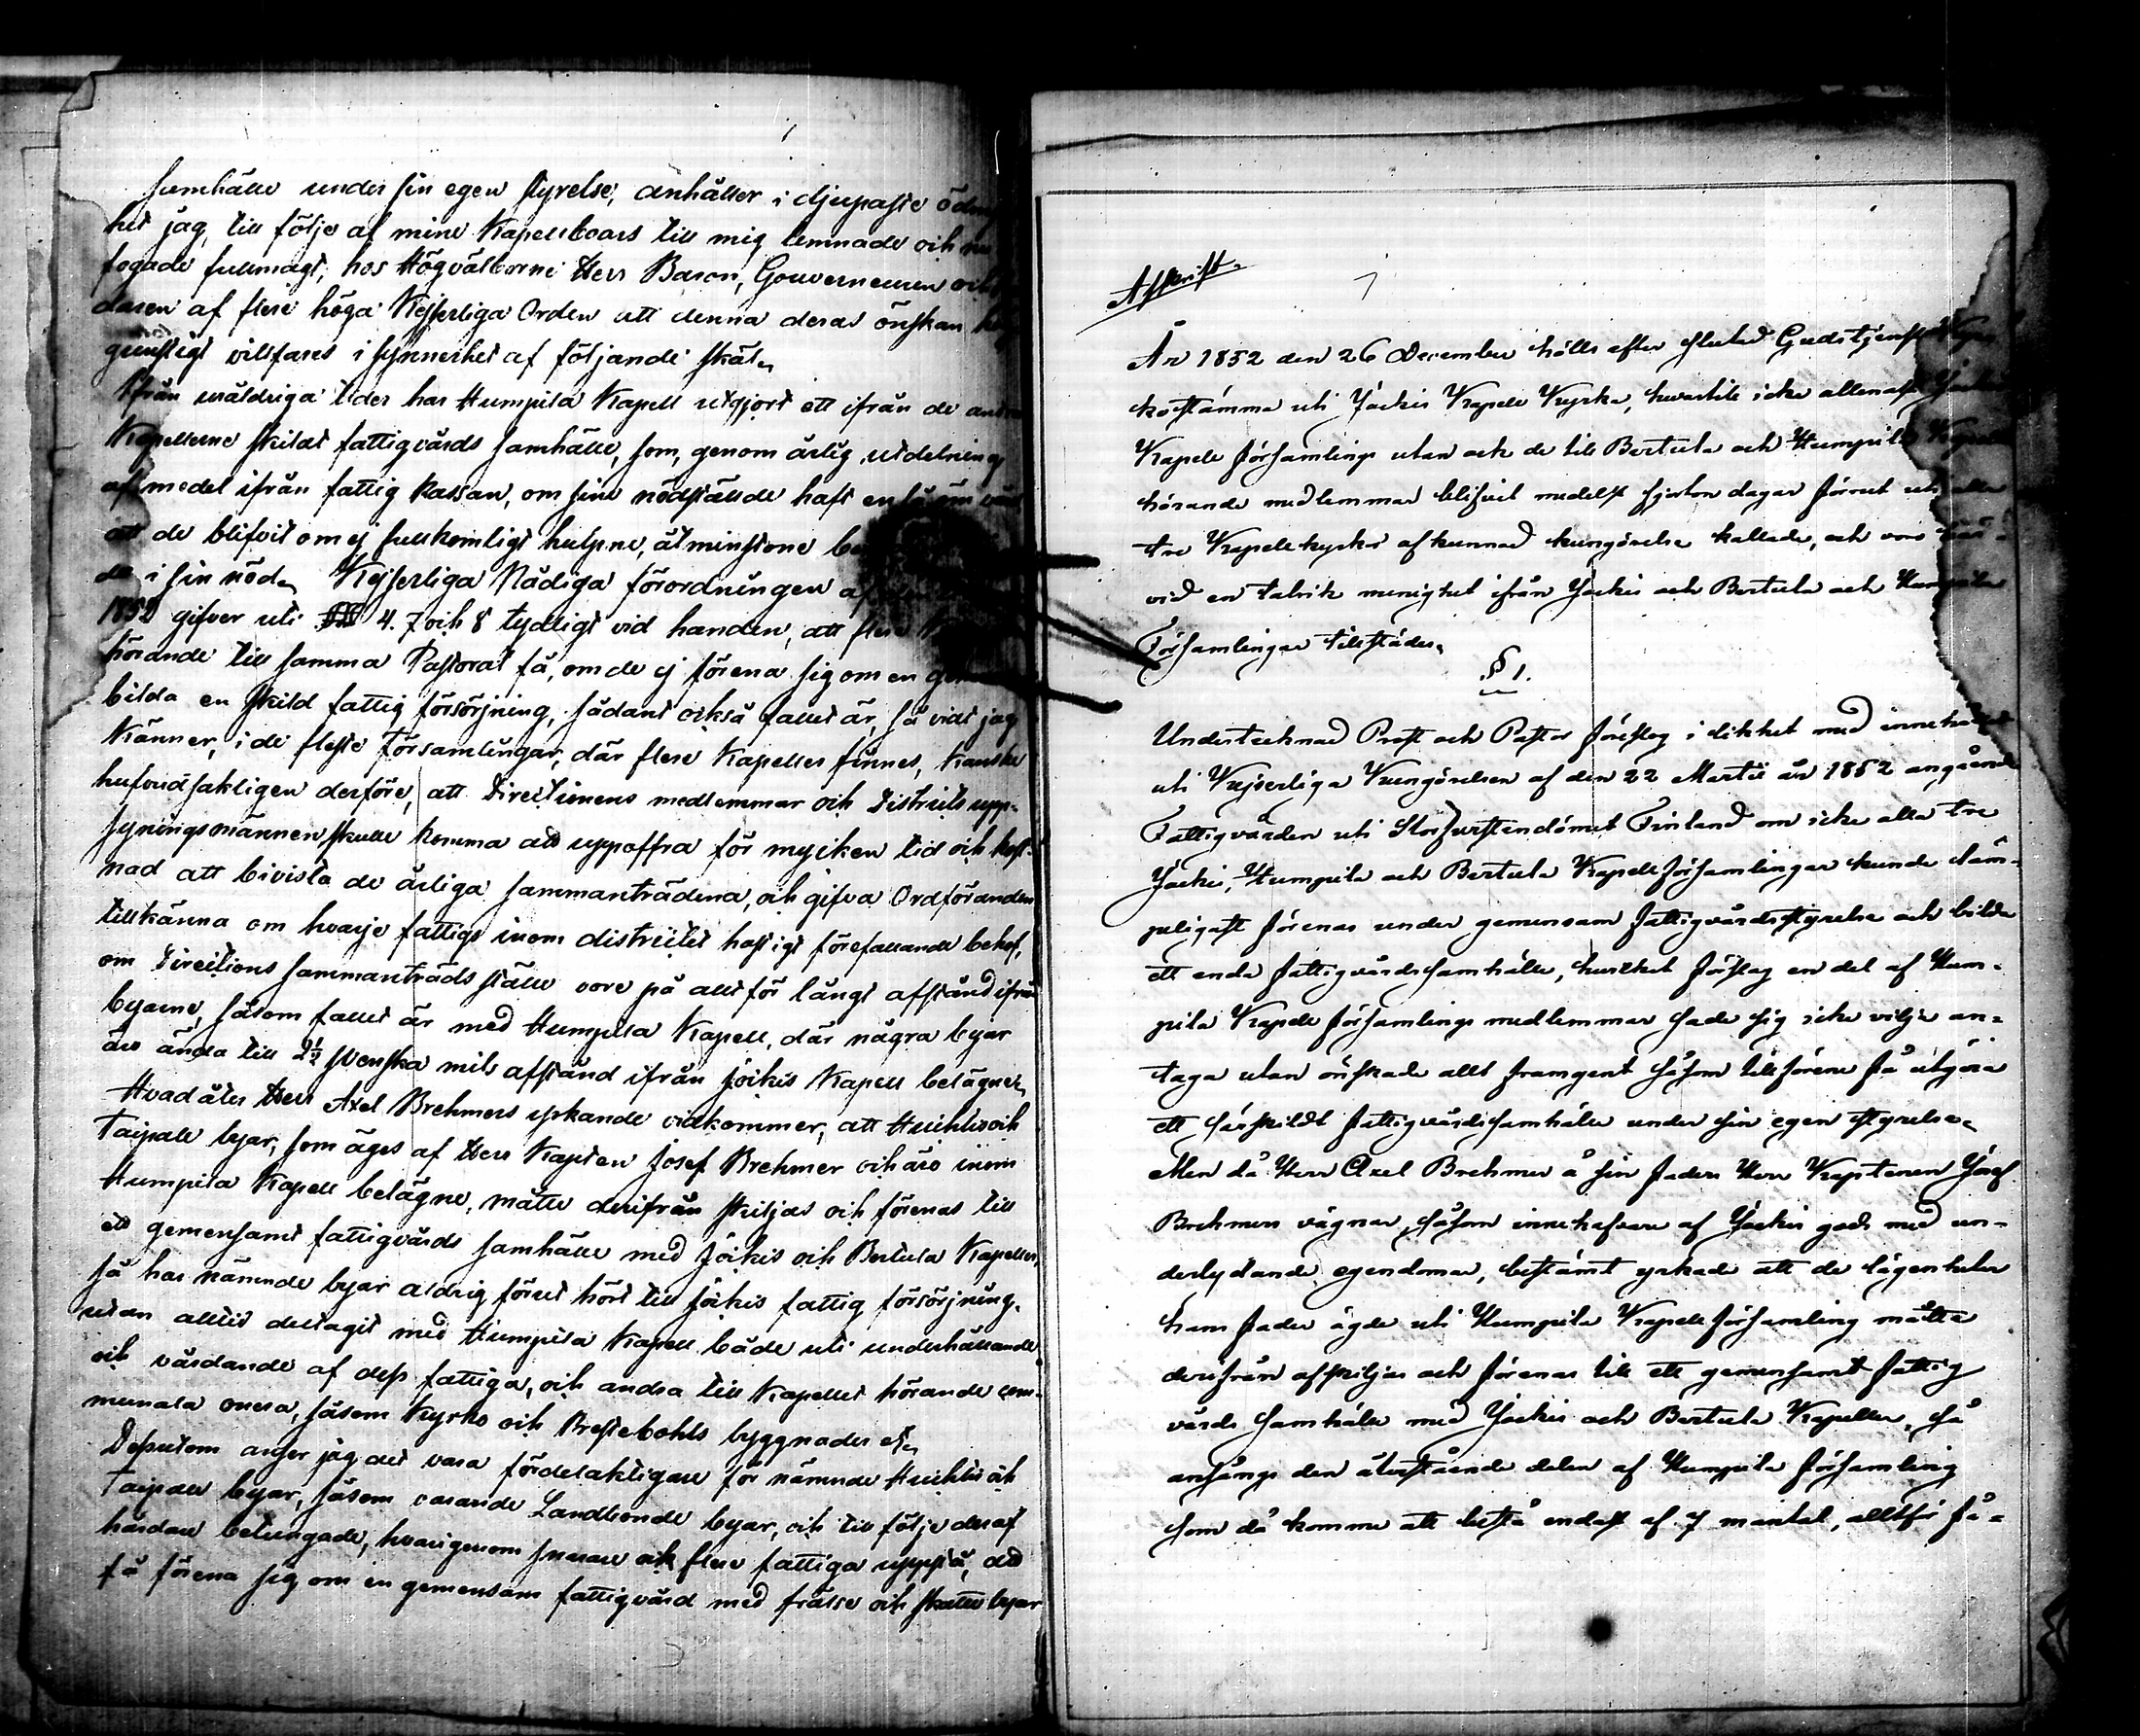 samhälle under sin egen styrelse, anhåller i djupaste ödmj
het jag, till följe af mine Kapellboars till mig lemnade och
fogade fullmagt, hos Högvälborne Herr Baron, Gouverneuren och
daren af flere höga Kejserliga Orden att denna deras önskan
gunstigt villfares i synnerhet af följande skäl.
Ifrån uråldriga tider har Humpila Kapell utgjort ett ifrån de andra
Kapellerne skildt fattigvårds samhälle, som, genom årlig utdelning
af medel ifrån fattig kassan, om sine nödstälde haft en
att de blifvit om ej fullkomligt hulpne, åtminstone
de i sin nöd. Kejserliga Nådiga förordningen af
1852 gifver uti §§ 4. 7 och 8 tydligt vid handen, att flere
hörande till samma Pastorat få, om de ej förena sig om en
bilda en skild fattig försörjning, sådant också fallet är, så vidt jag
känner, i de fleste församlingar, där flere Kapeller finnes, kanske
hufvudsakligen derföre, att Directionens medlemmar och Districts upp-
syningsmännen skulle komma att uppoffra för mycken tid och kost-
nad att bivista de årliga sammanträdena, och gifva Ordföranden
tillkänna om hvarje fattigs inom districtet hastigt förefallande behof,
om Directions sammanträds ställe vore på alltför långt afstånd ifrån
byarne, såsom fallet är med Humpila Kapell, där några byar
äro ända till 2½ Svenska mils afstånd ifrån Jockis Kapell belägne.
Hvad åter Herr Axel Brehmers yrkande vidkommer, att Huhtis och
Taipale byar, som äges af Herr Kapten Josef Brehmer och äro inom
Humpila Kapell belägne, måtte derifrån skiljas och förenas till
ett gemensamt fattigvårds samhälle med Jockis och Bertula Kapeller,
så har nämnde byar aldrig förut hört till Jockis fattig försörjning,
utan alltid deltagit med Humpila Kapell både uti underhållande
och vårdande af dess fattiga, och andra till Kapellet hörande com-
munala onera, såsom Kyrko och Prestebohls byggnader etc.
Dessutom anser jag det vara fördelaktigare för nämnde Huhtis och
Taipale byar, såsom varande Landbonde byar, och till följe deraf
hårdare betungade, hvarigenom snarare och flere fattiga uppstå, att
få förena sig om en gemensam fattigvård med frälse och skatte byar
Afskrift.
År 1852 den 26 December hölls efter slutad Gudstjenst
kostämma uti Jockis Kapell Kyrka, hvartill icke allenast Jockis
Kapell församlings utan ock de till Bertula och Humpila Kapell
hörande medlemmar blifvit medelst fjorton dagar förrut uti alla
tre Kapellkyrkor afkunnad kungörelse kallade, och voro
vid en talrik menighet ifrån Jockis och Bertula och Humpila
Församlingar tillstädes.
§ 1.
Undertecknad Prost och Pastor föreslog i likhet med innehållet
uti Kejserliga Kungörelsen af den 22 Martii år 1852 angående
Fattigvården uti Storfurstendömet Finland om icke alla tre
Jockis, Humpila och Bertula Kapellförsamlingar kunde läm-
peligast förenas under gemensam fattigvårdsstyrelse och bilda
ett enda fattigvårdssamhälle, hvilket förslag en del af Hum-
pila Kapell församlings medlemmar sade sig icke vilja an-
taga utan önskade allt framgent såsom tillförene få utgöra
ett särskildt fattigvårdssamhälle under sin egen styrelse.
Men då Herr Axel Brehmer å sin faders Herr Kaptenen Josef
Brehmers vägnar, såsom innehafvare af Jockis gods med un-
derlydande egendomar, bestämt yrkade att de lägenheter
hans fader ägde uti Humpila Kapellförsamling måtte
derifrån afskiljas och förenas till ett gemensamt fattig
vårds samhälle med Jockis och Bertula Kapeller, så
ansågs den återstående delen af Humpila församling
som då komme att bestå endast af 7 mantal, alltför få-